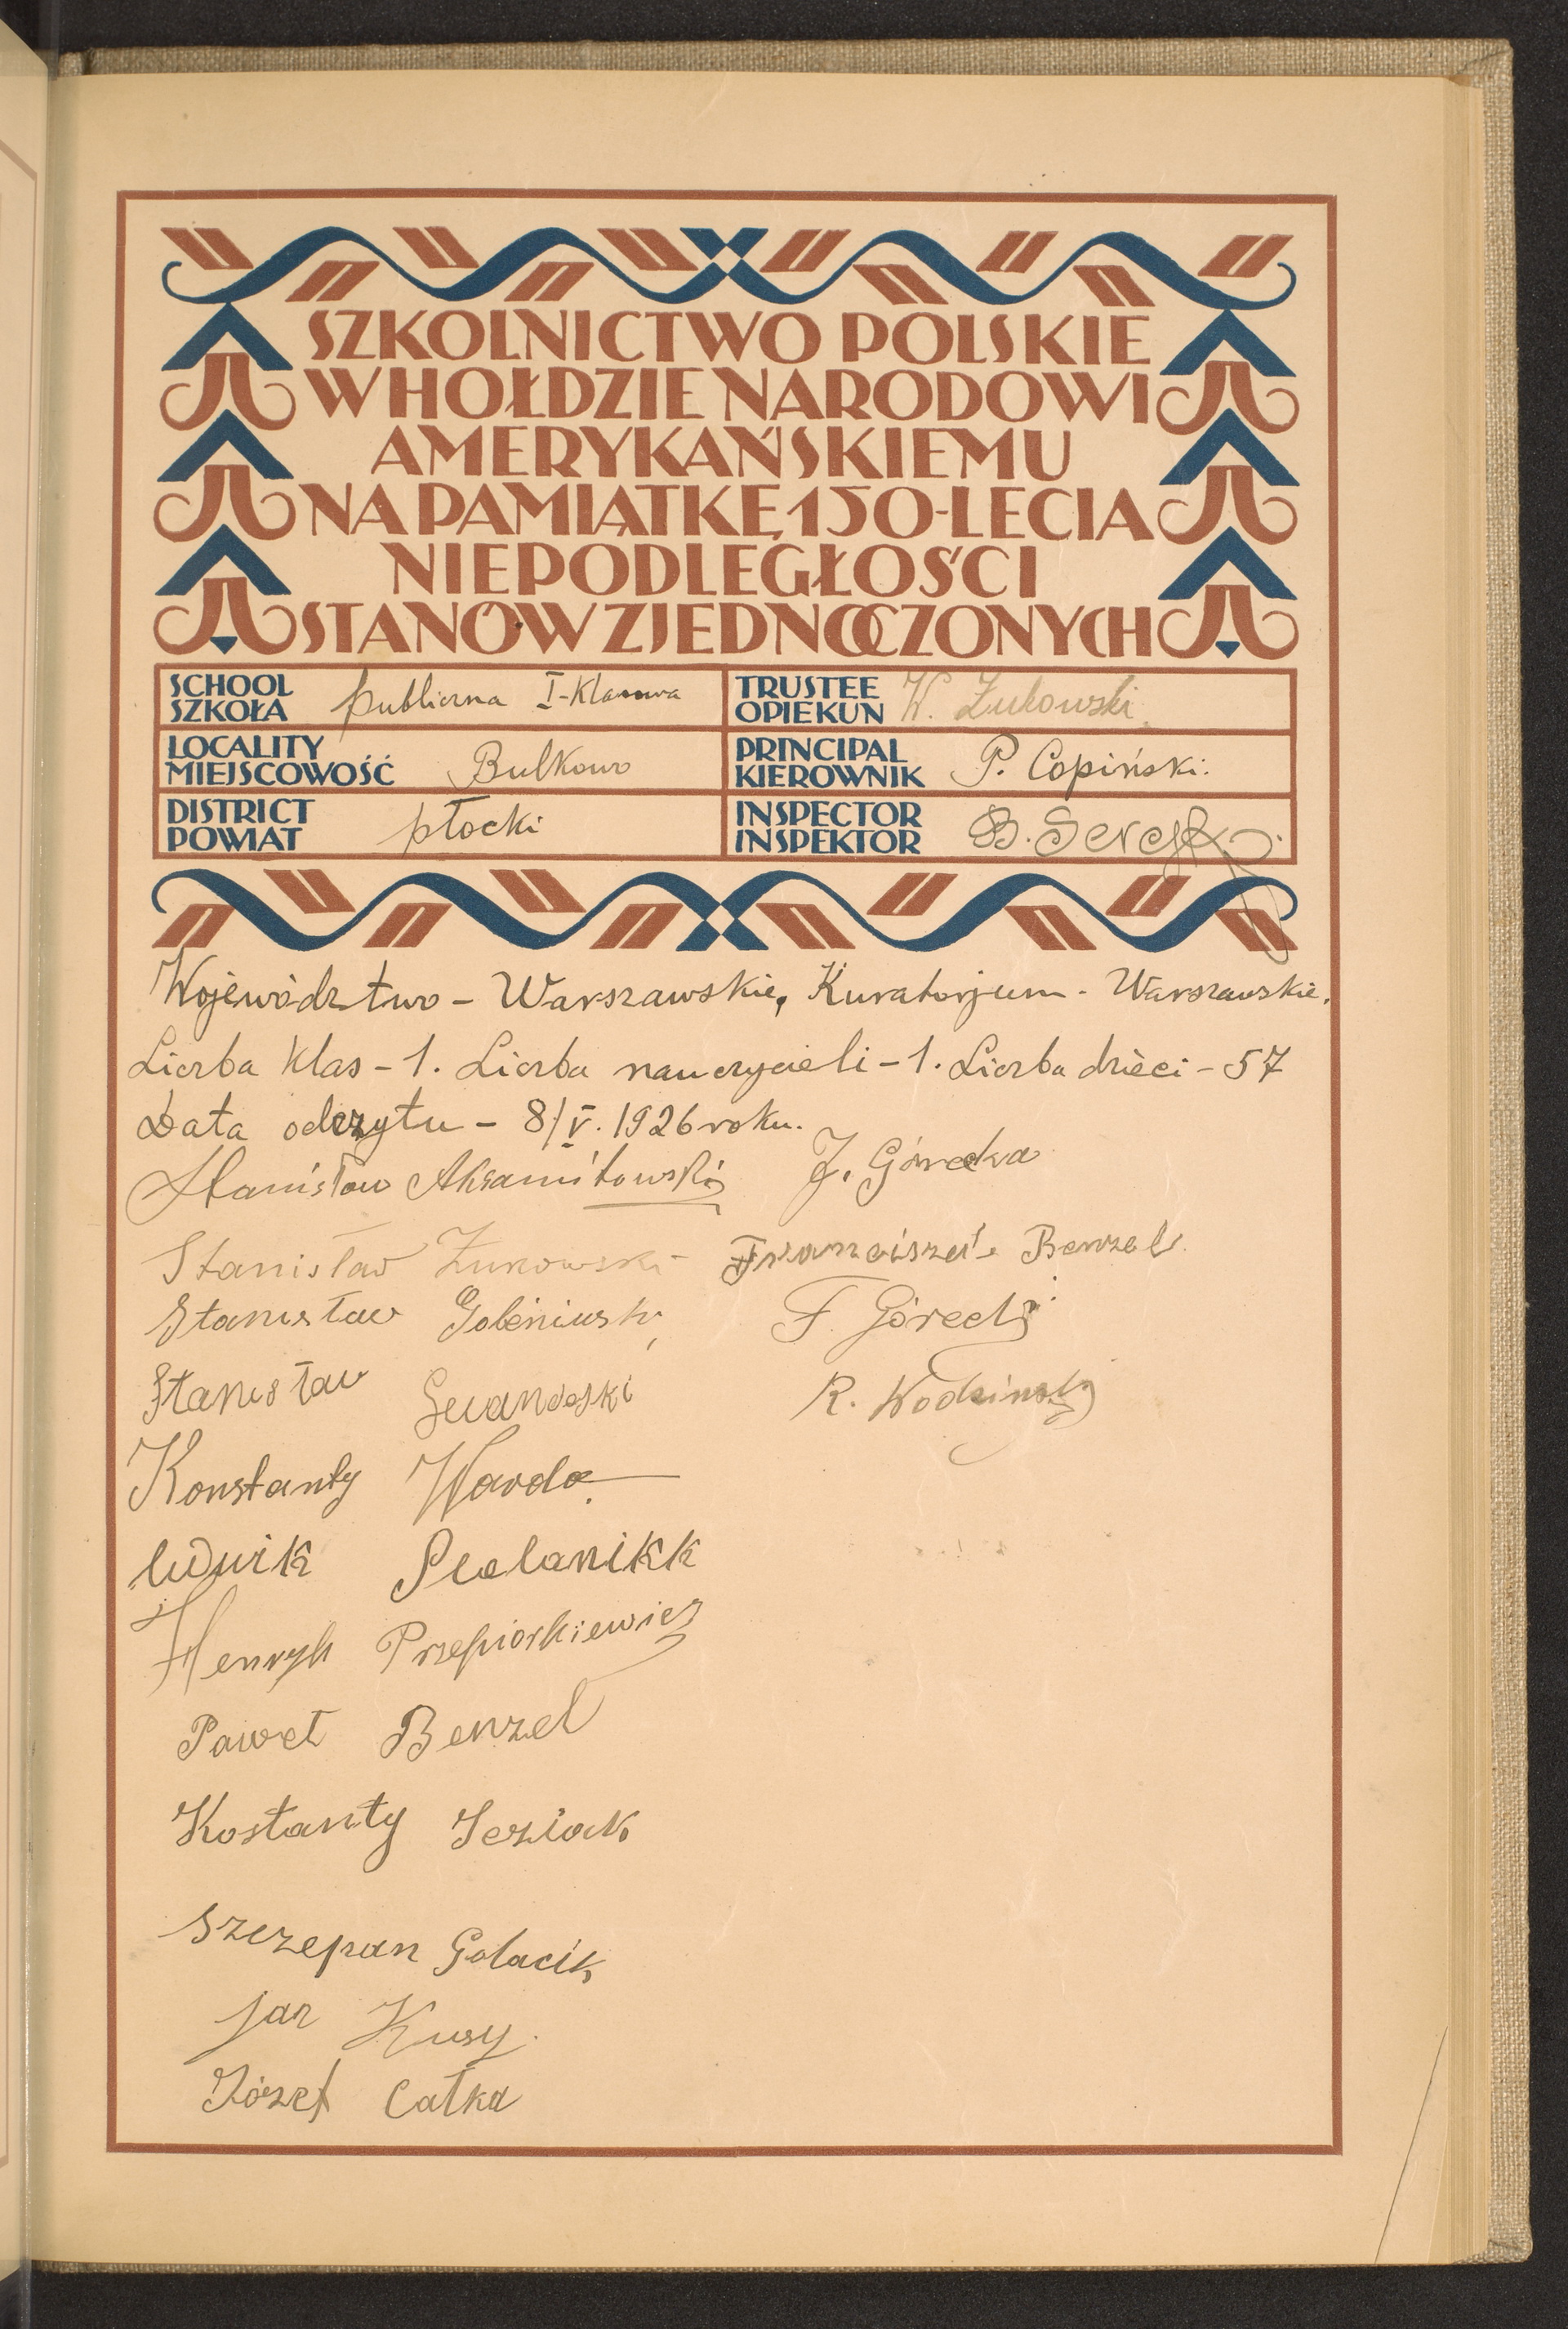 SZKOLNICTWO POLSKIE
W HOŁDZIE NARODOWI
AMERYKAŃSKIEMU
NA PAMIĄTKĘ 150-LECIA
NIEPODLEGŁOŚCI
STANÓW ZJEDNOCZONYCH
SCHOOL
SZKOŁA publiczna I-Klasowa
TRUSTEE
OPIEKUN W. Żukowski
LOCALITY
MIEJSCOWOŚĆ Bulkowo
PRINCIPAL
KIEROWNIK P. Copiński.
DISTRICT
POWIAT płocki
INSPECTOR
INSPEKTOR B.
Województwo - Warszawskie, Kuratorjum - Warszawskie.
Liczba klas - 1. Liczba nauczycieli - 1. Liczba dzieci - 57
Data odczytu - 8/V. 1926 roku.
Stanisław Aksamitowski
Stanisław Żukowski
Stanisław
Stanisław
Konstanty Warda
ludwik
Henryk Przepiorkiewicz
Paweł Benzel
Kostanty Jeziak
Szczepan Golacik
Jan Kusy.
Józef Całka
J. Górecka
Franciszek Benzel
F. Górecki
R. Wodzinski